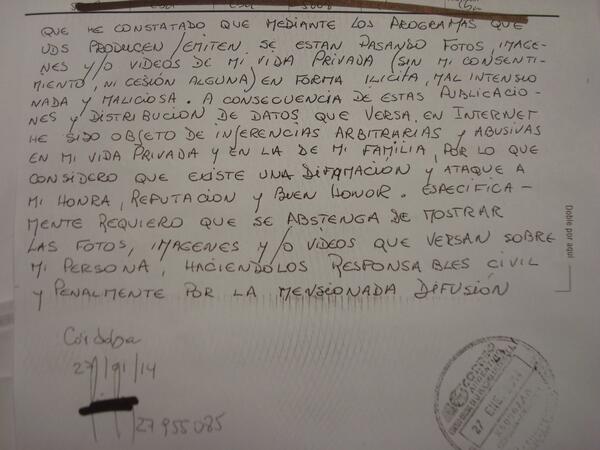 QUE HE CONSTATADO QUE MEDIANTE LOS PROGRAMAS QUE
UDS PRODUCEN/EMITEN SE ESTAN PASANDO FOTOS, IMAGE-
NES Y/O VIDEOS DE MI VIDA PRIVADA (SIN MI CONSENTI-
MIENTO, NI CESIÓN ALGUNA) EN FORMA ILICITA, MAL INTENSIO
NADA Y MALICIOSA. A CONSECUENCIA DE ESTAS PUBLICACIO-
NES Y DISTRIBUCION DE DATOS QUE VERSA, EN INTERNET
HE SIDO OBJETO DE INJERENCIAS ARBITRARIAS Y ABUSIVAS
EN MI VIDA PRIVADA Y EN LA DE MI FAMILIA, POR LO QUE
CONSIDERO QUE EXISTE UNA DIFAMACION Y ATAQUE A
MI HONRA, REPUTACION Y BUEN HONOR. ESPECIFICA-
MENTE REQUIERO QUE SE ABSTENGA DE MOSTRAR
LAS FOTOS, IMAGENES Y/O VIDEOS QUE VERSAN SOBRE
MI PERSONA, HACIÉNDOLOS RESPONSABLES CIVIL
Y PENALMENTE POR LA MENSIONADA DIFUSIÓN
Doble por aquí
Córdoba
27/01/14
27955085
CORREO
27 ENE